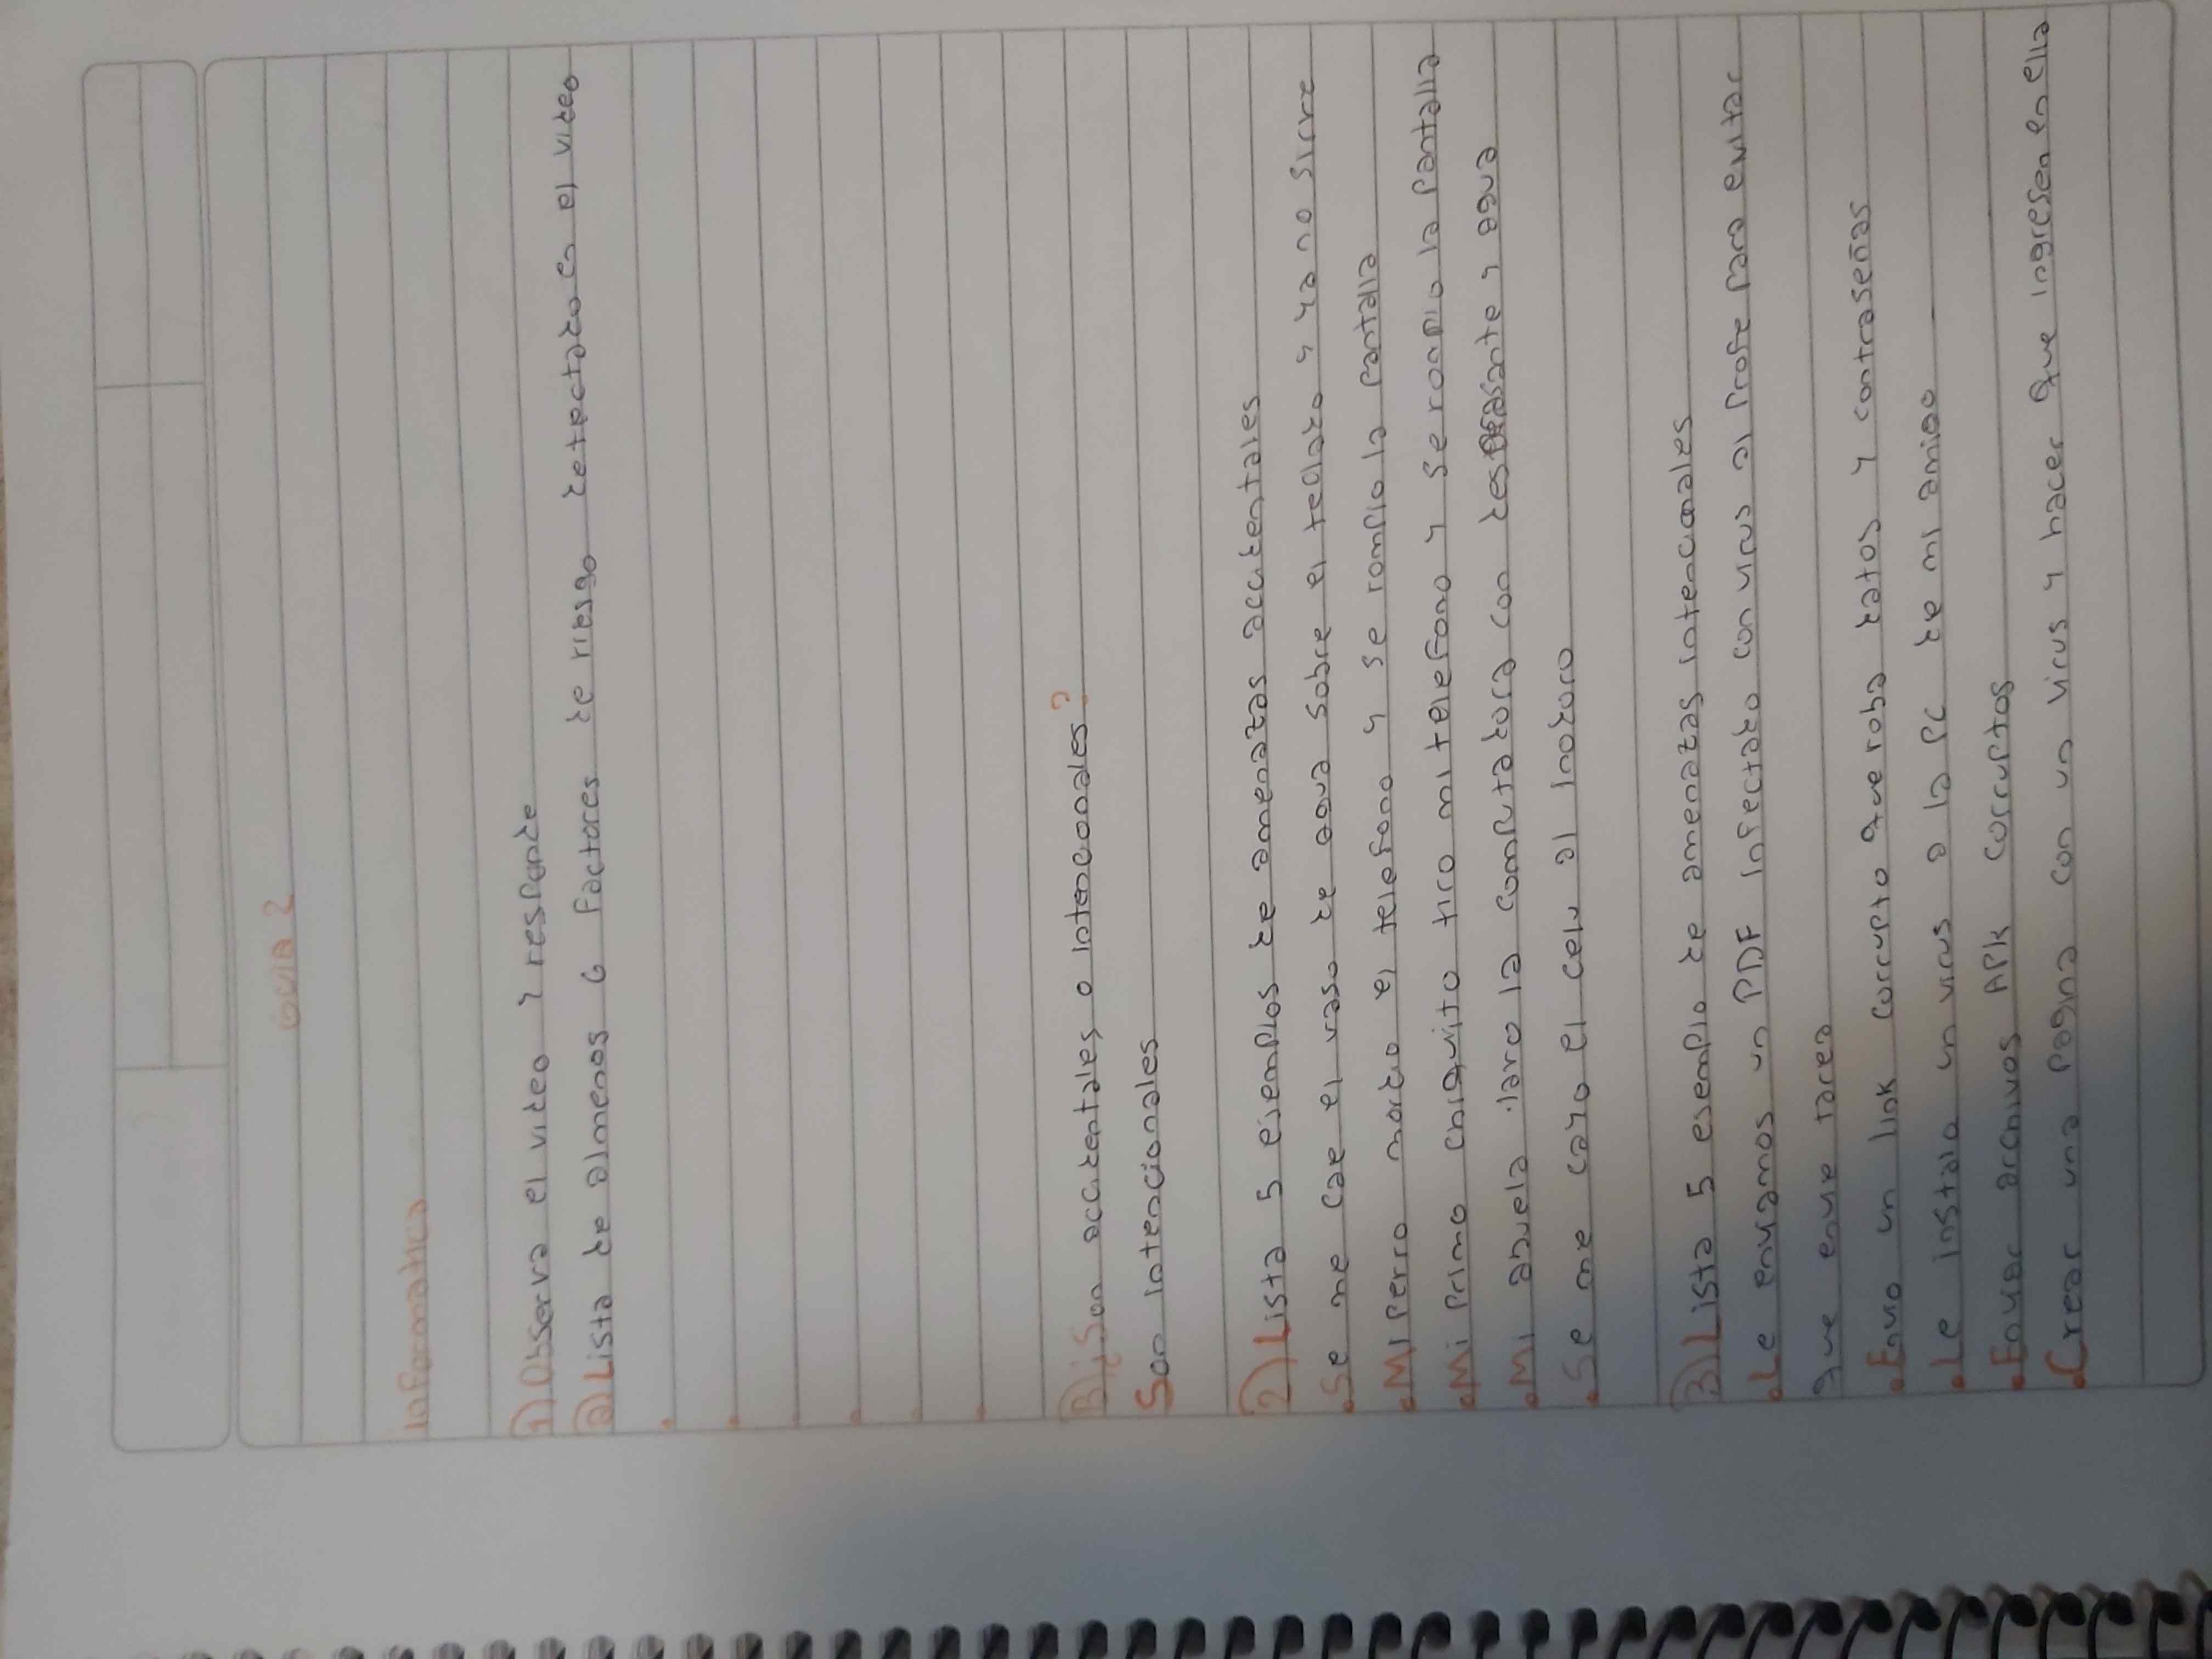 Guia 2
Informatica
1) Observa el video y responde
a) Lista de almenos 6 factores de riesgo detectados en la video
B) ¿Son accidentales o intencionales?
Son intencionales
2) Lista 5 esemplos de amenazas accidentales
• Se me cae el vaso de agua sobre el teclado y ya no sirve
• Mi perro mordio el telefono y se rompio la pantalla
• Mi primo chiquito tiro mi telefono y se rompio la pantalla
• Mi abuela lavo la computadora con y agua
• Se me cayo el celu al inodoro
3) Lista 5 esemplo de amenazas intencionales
• Le enviamos un PDF infectado con virus al profe para evitar
que envie tarea
• Envio un link corrupto que roba datos y contraseñas
• Le instalo un virus a la pc de mi amigo
• Enviar archivos APK corruptos
• Crear una pagina con un virus y hacer que ingresen en ella